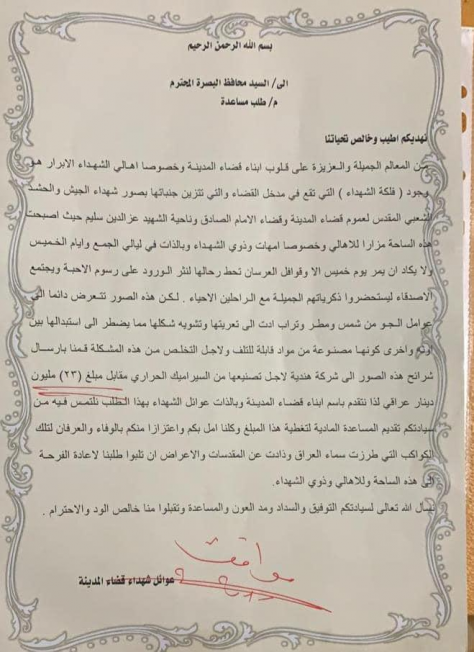 بسم الله الرحمن الرحيم
الى/ السيد محافظ البصرة المحترم
م/ طلب مساعدة
نهديكم اطيب وخالص تحياتنا
من المعالم الجميلة والعزيزة على قلوب ابناء قضاء المدينة وخصوصا اهالي الشهداء الابرار هو
وجود ( فلكة الشهداء ) التي تقع في مدخل القضاء والتي تتزين جنباتها بصور شهداء الجيش والحشد
الشعبي المقدس لعموم قضاء المدينة وقضاء الامام الصادق وناحية الشهيد عزالدين سليم حيث اصبحت
هذه الساحة مزارا للاهالي وخصوصا امهات وذوي الشهداء وبالذات في ليالي الجمع وايام الخميس
ولا يكاد ان يمر يوم خميس الا وقوافل العرسان تحط رحالها لنثر الورود على رسوم الاحبة ويجتمع
الاصدقاء ليستحضروا ذكرياتهم الجميلة مع الراحلين الاحياء . لكن هذه الصور تتعرض دائما الى
عوامل الجو من شمس ومطر وتراب ادت الى تعريتها وتشويه شكلها مما يضطر الى استبدالها بين
اونة واخرى كونها مصنوعة من مواد قابلة للتلف ولاجل التخلص من هذه المشكلة قمنا بارسال
شرائح هذه الصور الى شركة هندية لاجل تصنيعها من السيراميك الحراري مقابل مبلغ (٢٣) مليون
دينار عراقي لذا نتقدم باسم ابناء قضاء المدينة وبالذات عوائل الشهداء بهذا الطلب نلتمس فيه من
سيادتكم تقديم المساعدة المادية لتغطية هذا المبلغ وكلنا امل بكم واعتزازا منكم بالوفاء والعرفان لتلك
الكواكب التي طرزت سماء العراق وذادت عن المقدسات والاعراض ان تلبوا طلبنا لاعادة الفرحة
الى هذه الساحة وللاهالي وذوي الشهداء.
نسأل الله تعالى لسيادتكم التوفيق والسداد ومد العون والمساعدة وتقبلوا منا خالص الود والاحترام .
موافق
عوائل شهداء قضاء المدينة